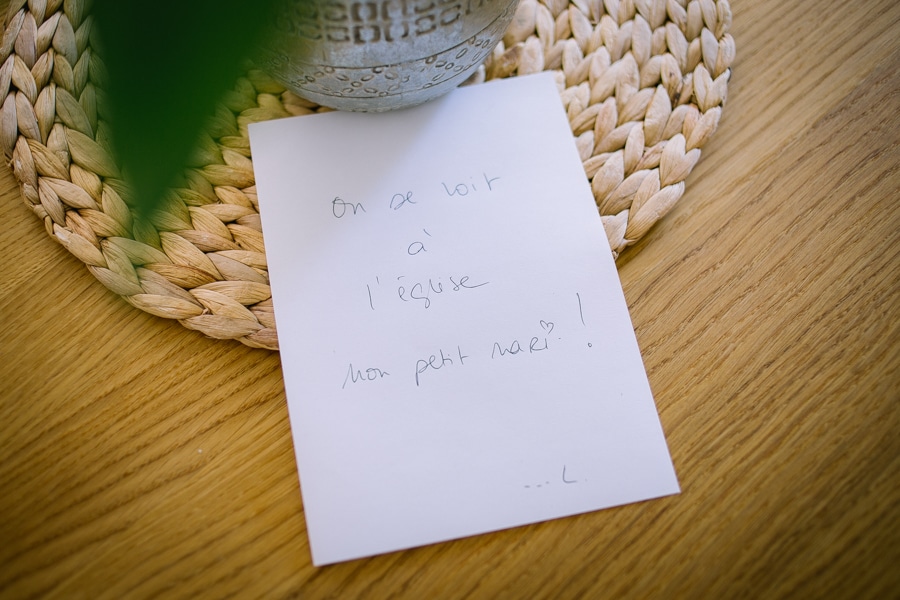 On se voit
à
l'église
Mon petit mari ♡ !
... L.